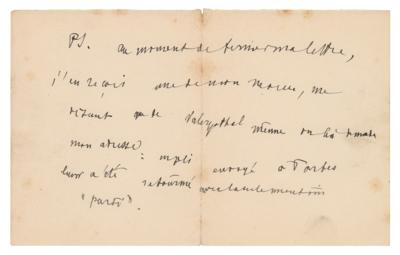 PS. Au moment de fermer ma lettre,
j'en reçois une de mon , me
disant que de même on lui demande
mon adresse : un pli envoyé à
leur a été retourné avec la seule mention
"parti".